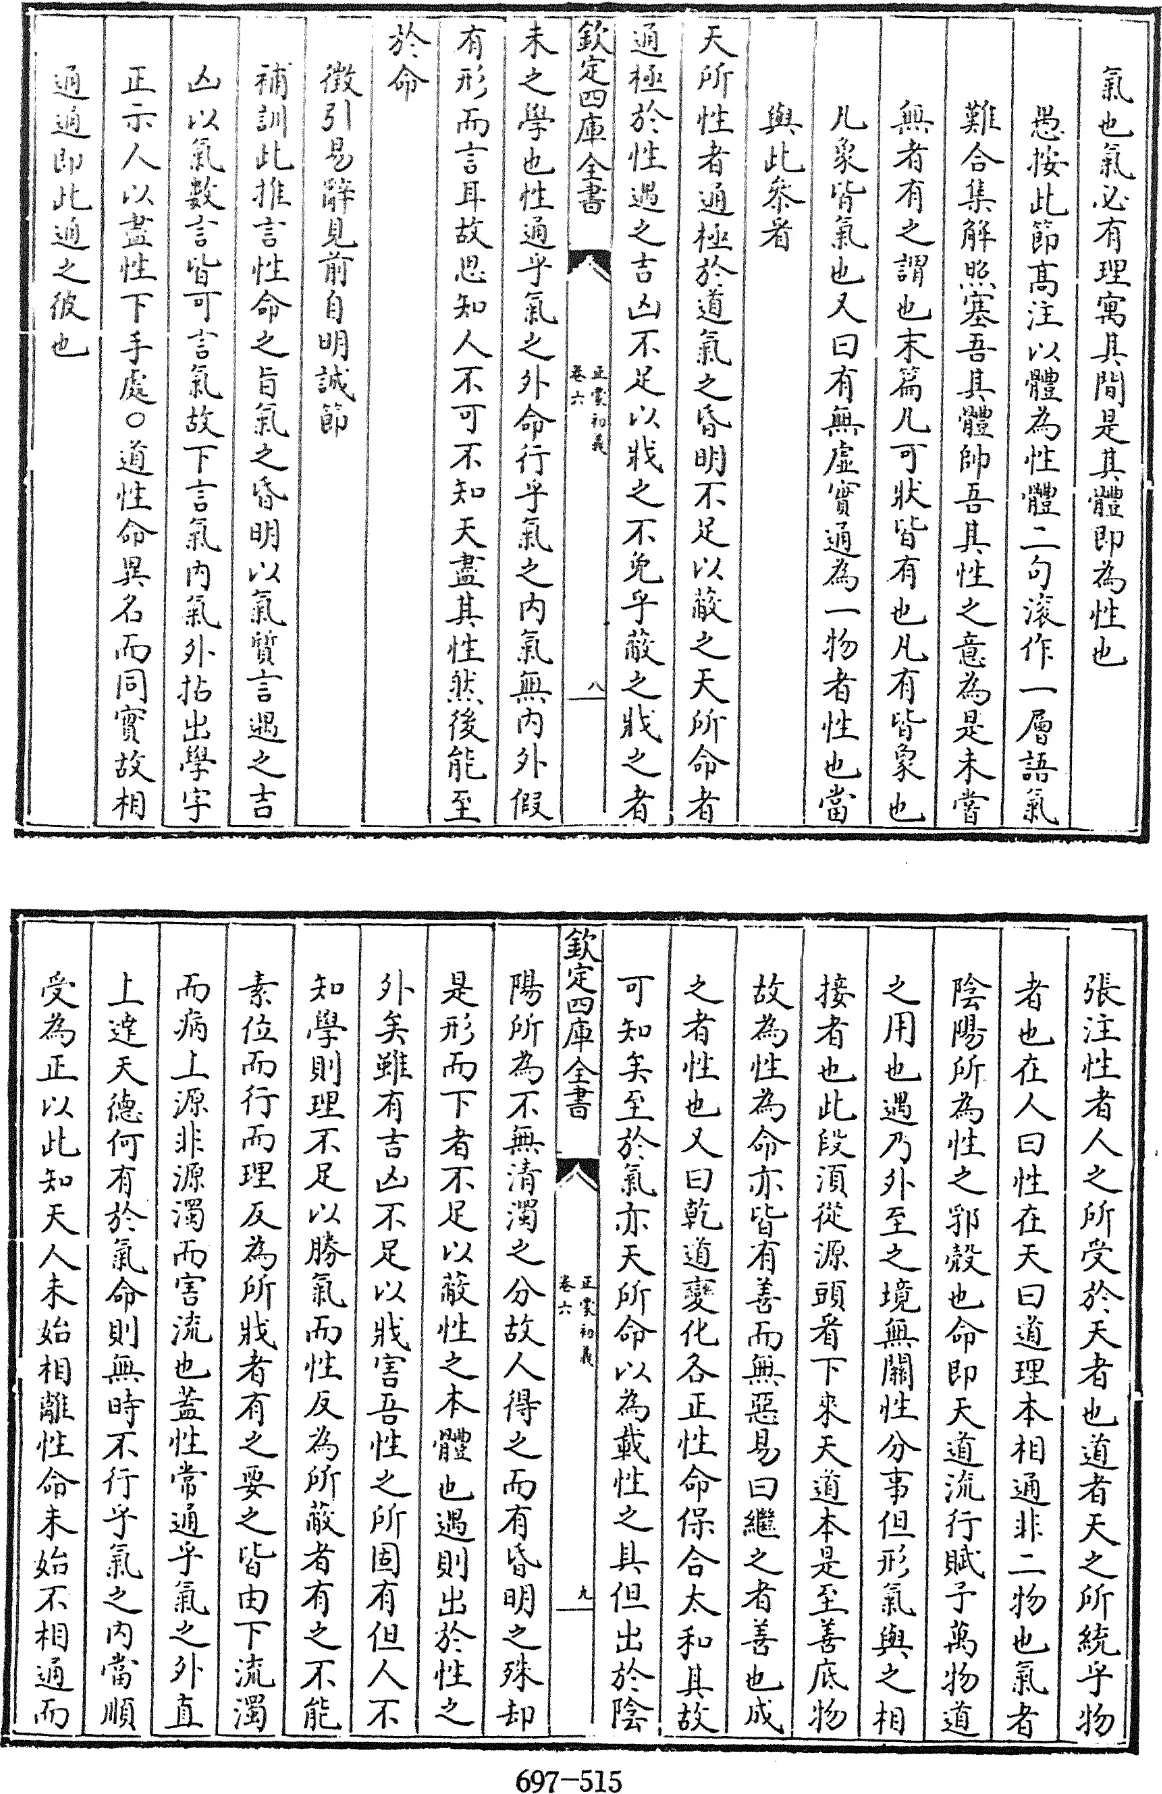 氣也氣必有理寓其間是其體即為性也
愚按此節髙注以體為性體二句滚作一層語氣
難合集解照塞吾其體帥吾其性之意為是未嘗
無者有之謂也末篇凡可狀皆有也凡有皆象也
凡象皆氣也又曰有無虛實通為一物者性也當
與此叅看
天所性者通極於道氣之昏明不足以蔽之天所命者
通極於性遇之吉凶不足以戕之不免乎蔽之戕之者
欽定四庫全書
正蒙初義
卷六
八
未之學也性通乎氣之外命行乎氣之内氣無内外假
有形而言耳故思知人不可不知天盡其性然後能至
於命
徴引易辭見前自明誠節
補訓此推言性命之旨氣之昏明以氣質言遇之吉
凶以氣數言皆可言氣故下言氣内氣外拈出學字
正示人以盡性下手處○道性命異名而同實故相
通通即此通之彼也
張注性者人之所受於天者也道者天之所統乎物
者也在人曰性在天曰道理本相通非二物也氣者
陰陽所為性之郛殻也命即天道流行賦予萬物道
之用也遇乃外至之境無關性分事但形氣與之相
接者也此段須從源頭看下來天道本是至善底物
故為性為命亦皆有善而無惡易曰繼之者善也成
之者性也又曰乾道變化各正性命保合太和其故
可知矣至於氣亦天所命以為載性之具但出於陰
欽定四庫全書
正蒙初義
卷六
九
陽所為不無清濁之分故人得之而有昏明之殊却
是形而下者不足以蔽性之本體也遇則出於性之
外矣雖有吉凶不足以戕害吾性之所固有但人不
知學則理不足以勝氣而性反為所蔽者有之不能
素位而行而理反為所戕者有之要之皆由下流濁
而病上源非源濁而害流也蓋性常通乎氣之外直
上達天德何有於氣命則無時不行乎氣之内當順
受為正以此知天人未始相離性命未始不相通而
697-515